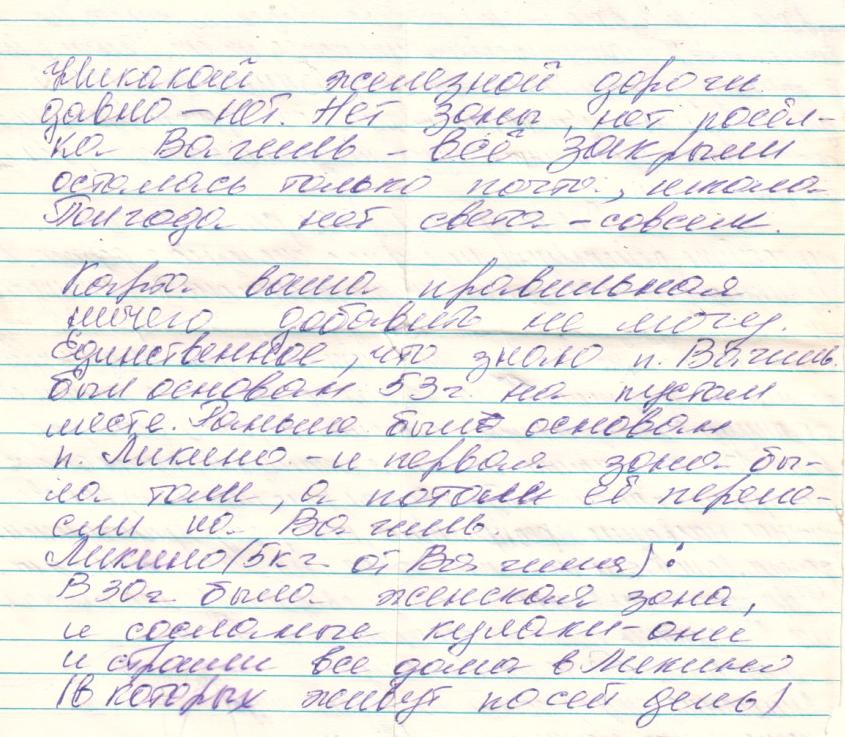 Никакой железной дороги
давно – нет. Нет зоны, нет посёл-
ка Вагиль – всё закрыли
осталась только почта, школа
Полгода нет света – совсем.
Карта ваша правильная
ничего добавить не могу.
Единственное, что знаю п. Вагиль
был основан 53 г. на пустом
месте. Раньше был основан
п. Ликино – и первая зона бы-
ла там, а потом её перене-
сли на Вагиль.
Ликино (5 кг от Вагиля):
В 30 г. была женская зона,
и сосланые кулаки – они
и строили все дома в Ликино
(в которых живут посей день)